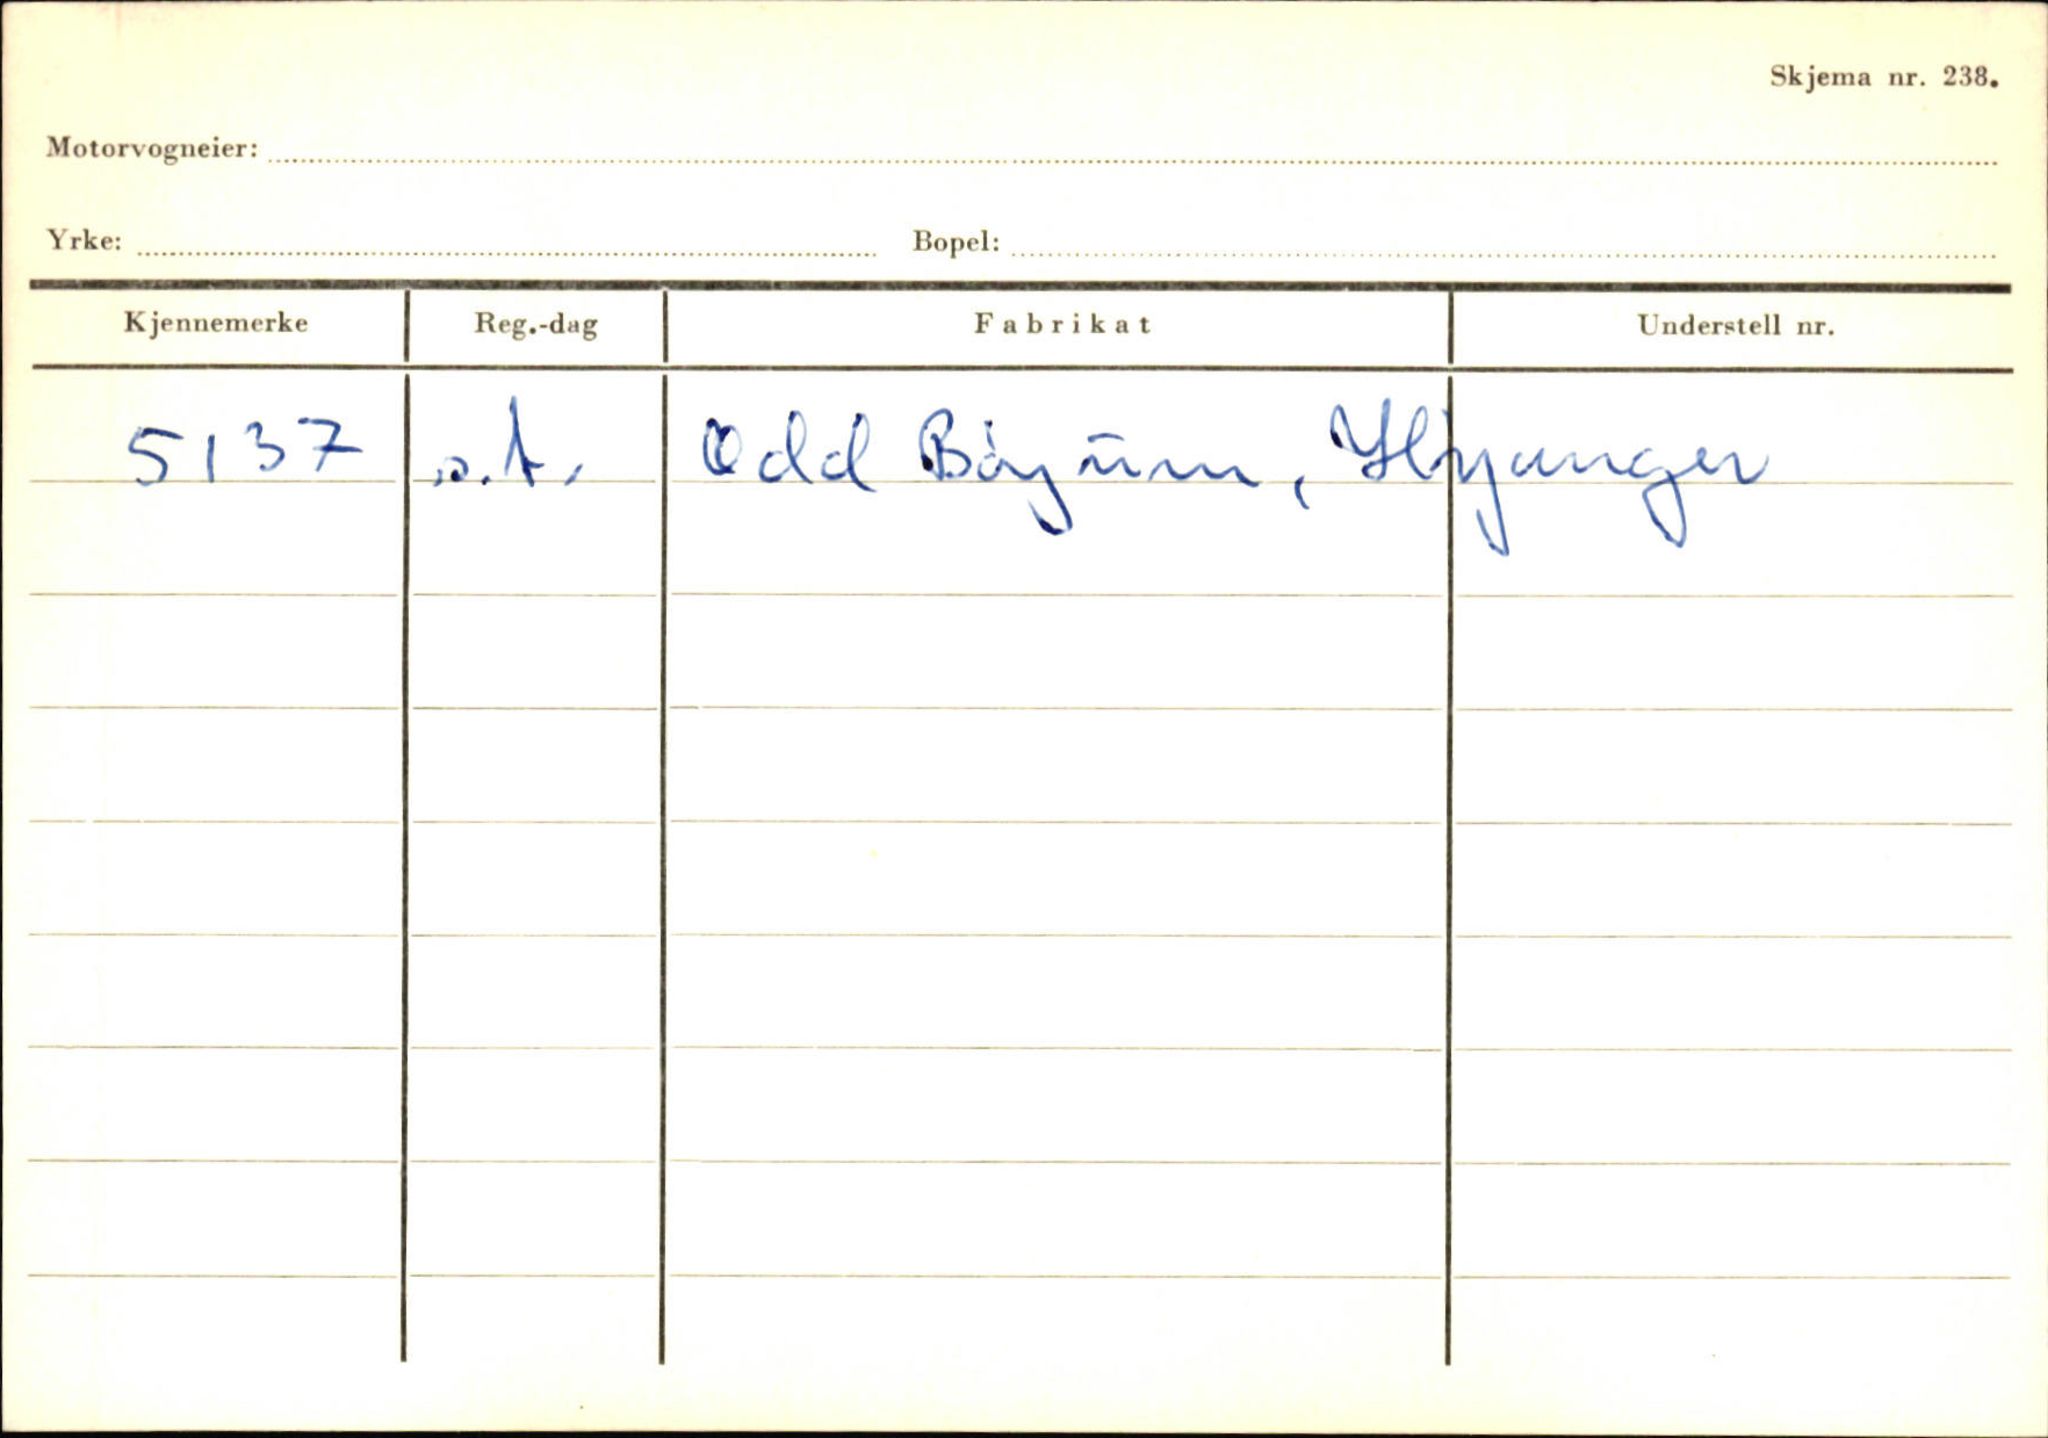 Skjema nr. 238.
Motorvogneier:
Yrke: Bopel:
Kjennemerke Reg.-dag Fabrikat Understell nr.
5137 Odd Bøyum, Høyanger